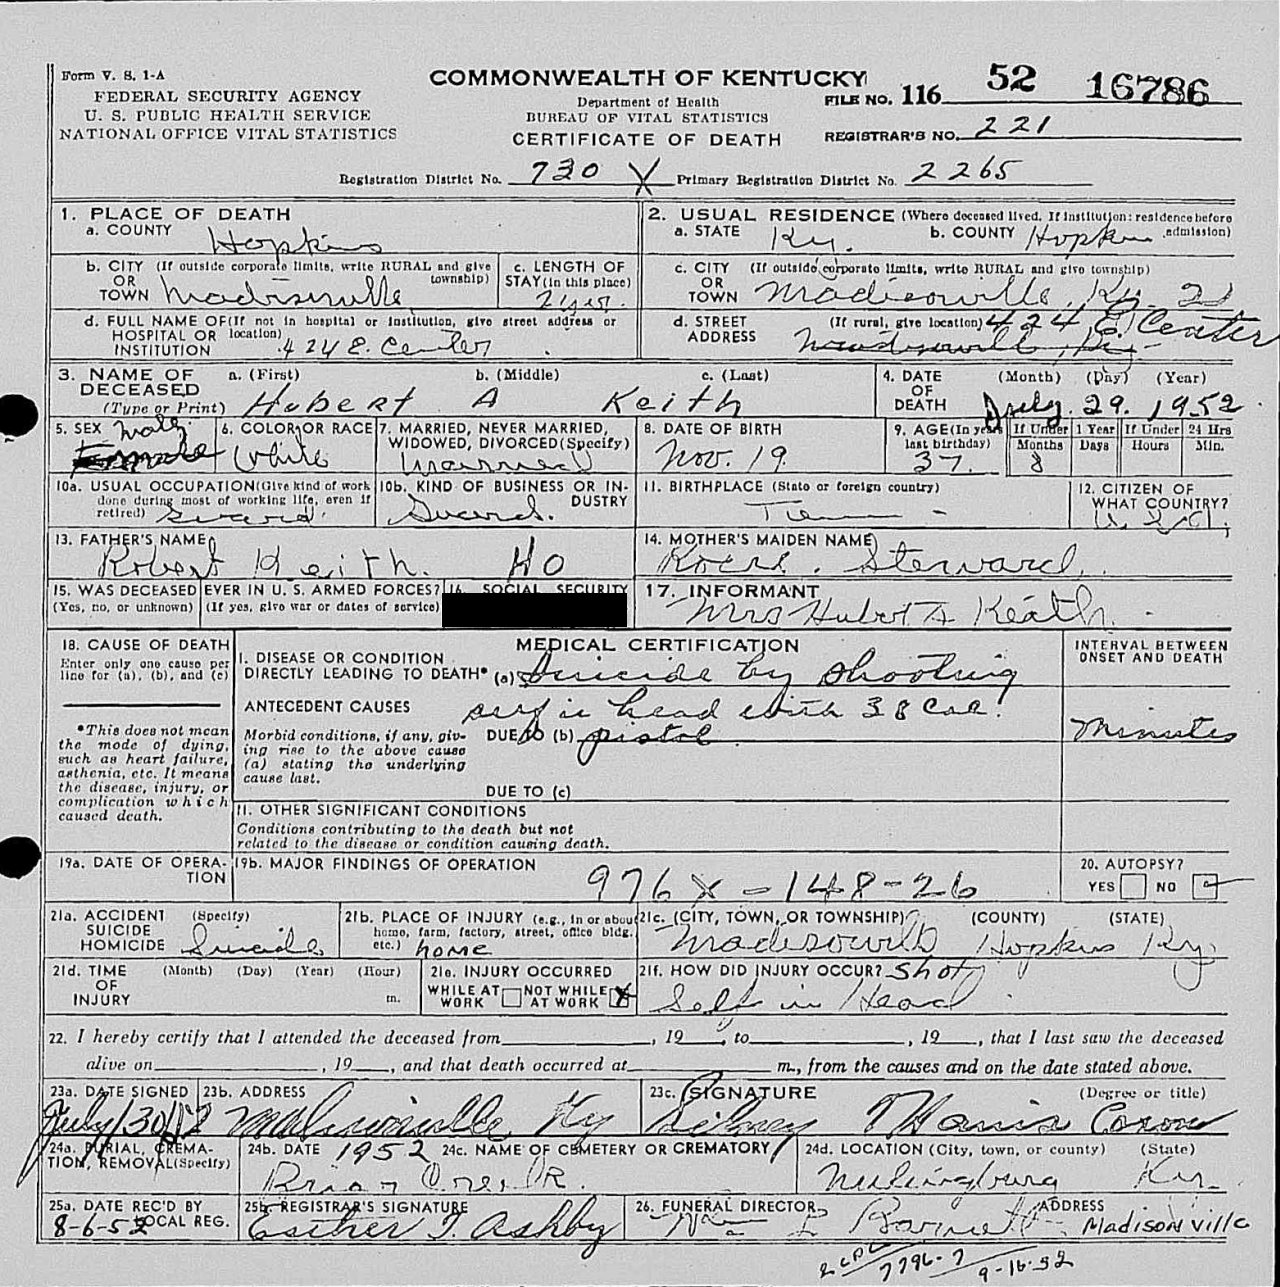 Form V. S. 1-A
FEDERAL SECURITY AGENCY
U. S. PUBLIC HEALTH SERVICE
NATIONAL OFFICE VITAL STATISTICS
COMMONWEALTH OF KENTUCKY
Department of Health
BUREAU OF VITAL STATISTICS
CERTIFICATE OF DEATH
FILE NO. 116 52 16786
REGISTRAR'S NO. 221
Registration District No. 730 X Primary Registration District No. 2265
1. PLACE OF DEATH
a. COUNTY Hopkins
2. USUAL RESIDENCE (Where deceased lived. If institution: residence before admission)
a. STATE Ky. b. COUNTY Hopkins
b. CITY (If outside corporate limits, write RURAL and give township)
OR
TOWN Madisonville
c. LENGTH OF STAY (in this place)
2 yrs.
c. CITY (If outside corporate limits, write RURAL and give township)
OR
TOWN Madisonville, Ky.
d. FULL NAME OF (If not in hospital or institution, give street address or location)
HOSPITAL OR
INSTITUTION 424 E. Center
d. STREET ADDRESS (If rural, give location) 424 E. Center
Madisonville, Ky.
3. NAME OF DECEASED (Type or Print)
a. (First) b. (Middle) c. (Last)
Hubert A Keith
4. DATE OF DEATH (Month) (Day) (Year)
July 29. 1952
5. SEX Male
Female
6. COLOR OR RACE
White
7. MARRIED, NEVER MARRIED, WIDOWED, DIVORCED (Specify)
Married
8. DATE OF BIRTH
Nov. 19
9. AGE (In years last birthday)
37
If Under 1 Year
Months Days
8
If Under 24 Hrs
Hours Min.
10a. USUAL OCCUPATION (Give kind of work done during most of working life, even if retired)
10b. KIND OF BUSINESS OR INDUSTRY
11. BIRTHPLACE (State or foreign country)
Tenn -
12. CITIZEN OF WHAT COUNTRY?
U.S.A.
13. FATHER'S NAME
Robert Keith. HO
14. MOTHER'S MAIDEN NAME
Steward.
15. WAS DECEASED EVER IN U. S. ARMED FORCES?
(Yes, no, or unknown) (If yes, give war or dates of service)
16. SOCIAL SECURITY
17. INFORMANT
Mrs Hubert A Keath.
18. CAUSE OF DEATH
Enter only one cause per line for (a), (b), and (c)
*This does not mean the mode of dying, such as heart failure, asthenia, etc. It means the disease, injury, or complication which caused death.
MEDICAL CERTIFICATION
INTERVAL BETWEEN ONSET AND DEATH
I. DISEASE OR CONDITION DIRECTLY LEADING TO DEATH* (a) Suicide by shooting
ANTECEDENT CAUSES self in head with 38 Cal.
Morbid conditions, if any, giving rise to the above cause (a) stating the underlying cause last.
DUE TO (b) pistol
Minutes
DUE TO (c)
II. OTHER SIGNIFICANT CONDITIONS
Conditions contributing to the death but not related to the disease or condition causing death.
19a. DATE OF OPERATION
19b. MAJOR FINDINGS OF OPERATION
976 X - 148-26
20. AUTOPSY?
YES NO
21a. ACCIDENT (Specify)
SUICIDE
HOMICIDE Suicide
21b. PLACE OF INJURY (e.g., in or about home, farm, factory, street, office bldg. etc.) home
21c. (CITY, TOWN, OR TOWNSHIP) (COUNTY) (STATE)
Madisonville Hopkins Ky
21d. TIME OF INJURY (Month) (Day) (Year) (Hour)
m.
21e. INJURY OCCURRED
WHILE AT WORK NOT WHILE AT WORK X
21f. HOW DID INJURY OCCUR? Shot
Self in Head
22. I hereby certify that I attended the deceased from , 19 , to , 19 , that I last saw the deceased
alive on , 19 , and that death occurred at m., from the causes and on the date stated above.
23a. DATE SIGNED
July/30/52
23b. ADDRESS
Madisonville Ky
23c. SIGNATURE (Degree or title)
Harris Coroner
24a. BURIAL, CREMATION, REMOVAL (Specify)
24b. DATE 1952
24c. NAME OF CEMETERY OR CREMATORY
24d. LOCATION (City, town, or county) (State)
Ky.
25a. DATE REC'D BY LOCAL REG.
8-6-52
25b. REGISTRAR'S SIGNATURE
Esther T. Ashby
26. FUNERAL DIRECTOR ADDRESS
Barnett Madisonville
7796-7
9-16-52